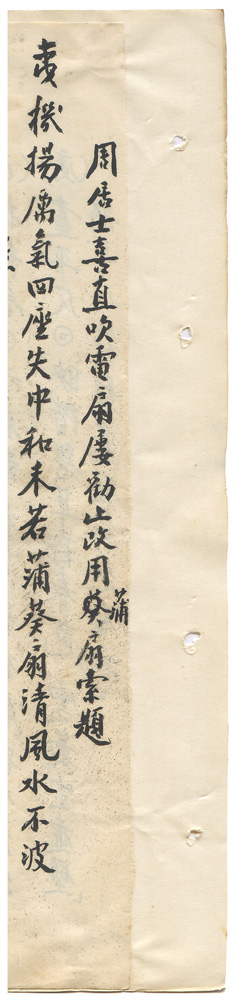 周居士喜直吹電扇屢勸止改用蒲葵扇索題
機揚厲氣四座失中和未若蒲葵扇清風水不波